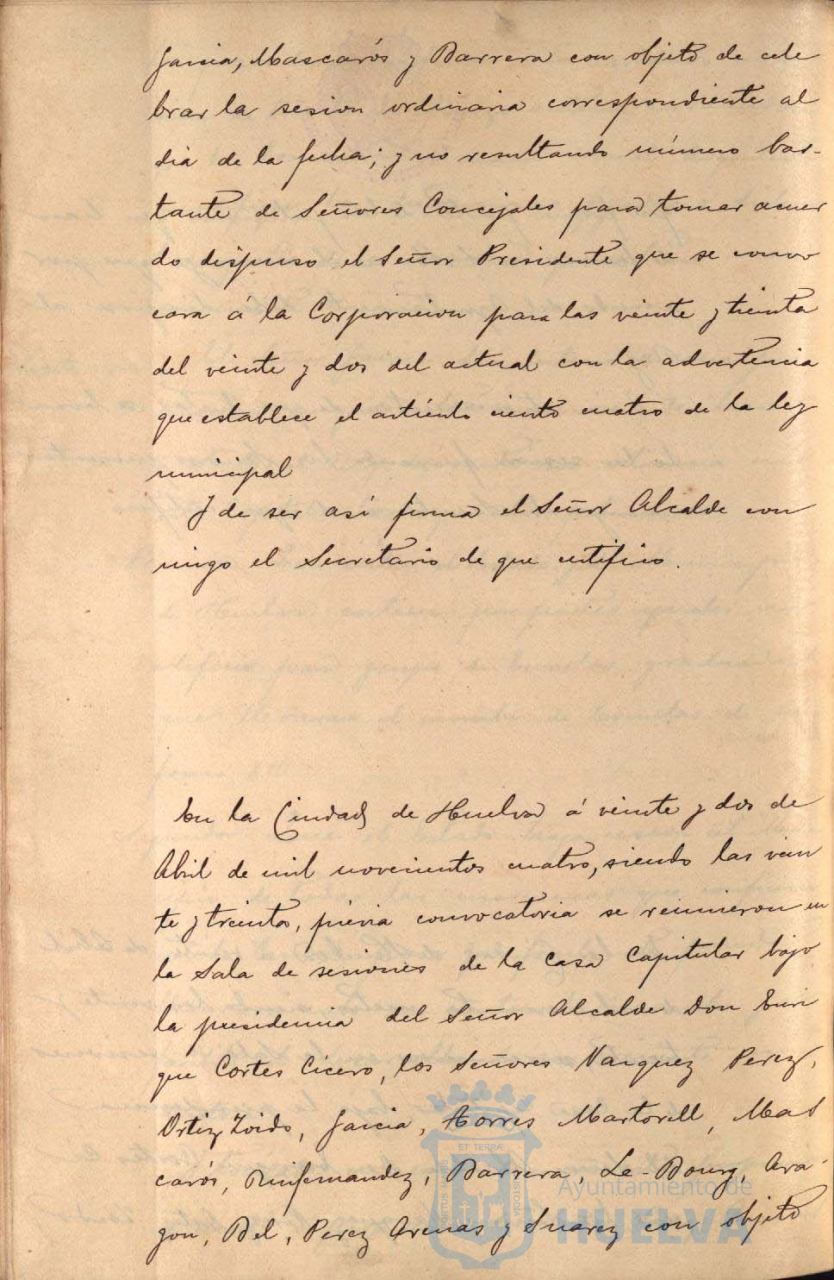 Garcia, Mascarós y Barrera con objeto de cele
brar la sesion ordinaria correspondiente al
dia de la fecha; y no resultando número bas-
tante de Señores Concejales para tomar acuer
do dispuso el Señor Presidente que se convo
cara á la Corporacion para las veinte y treinta
del veinte y dos del actual con la advertencia
que establece el artículo ciento cuatro de la ley
municipal
Y de ser así firma el Señor Alcalde con
migo el Secretario de que certifico.
En la Ciudad de Huelva á veinte y dos de
Abril de mil novecientos cuatro, siendo las vein
te y treinta, prévia convocatoria se reunieron en
la Sala de sesiones de la Casa Capitular bajo
la presidencia del Señor Alcalde Don Enri
que Cortes Cicero, los Señores Vazquez Perez,
Ortiz Zoido, Garcia, Torres Martorell, Mas
carós, Ruifernandez, Barrera, Le-Bourg, Ara-
gon, Bel, Perez Arenas y Suarez con objeto
Ayuntamiento de
HUELVA